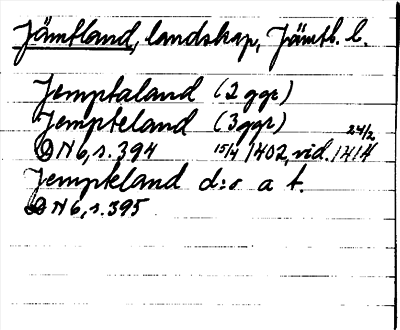 Jämtland, landskap, Jämtl. l.
Jemptaland (2 ggr)
Jempteland (3ggr)
DN 6, s. 394 15/4 1402, vid. 24/2 1414
Jempteland d:o a t.
DN 6, s. 395